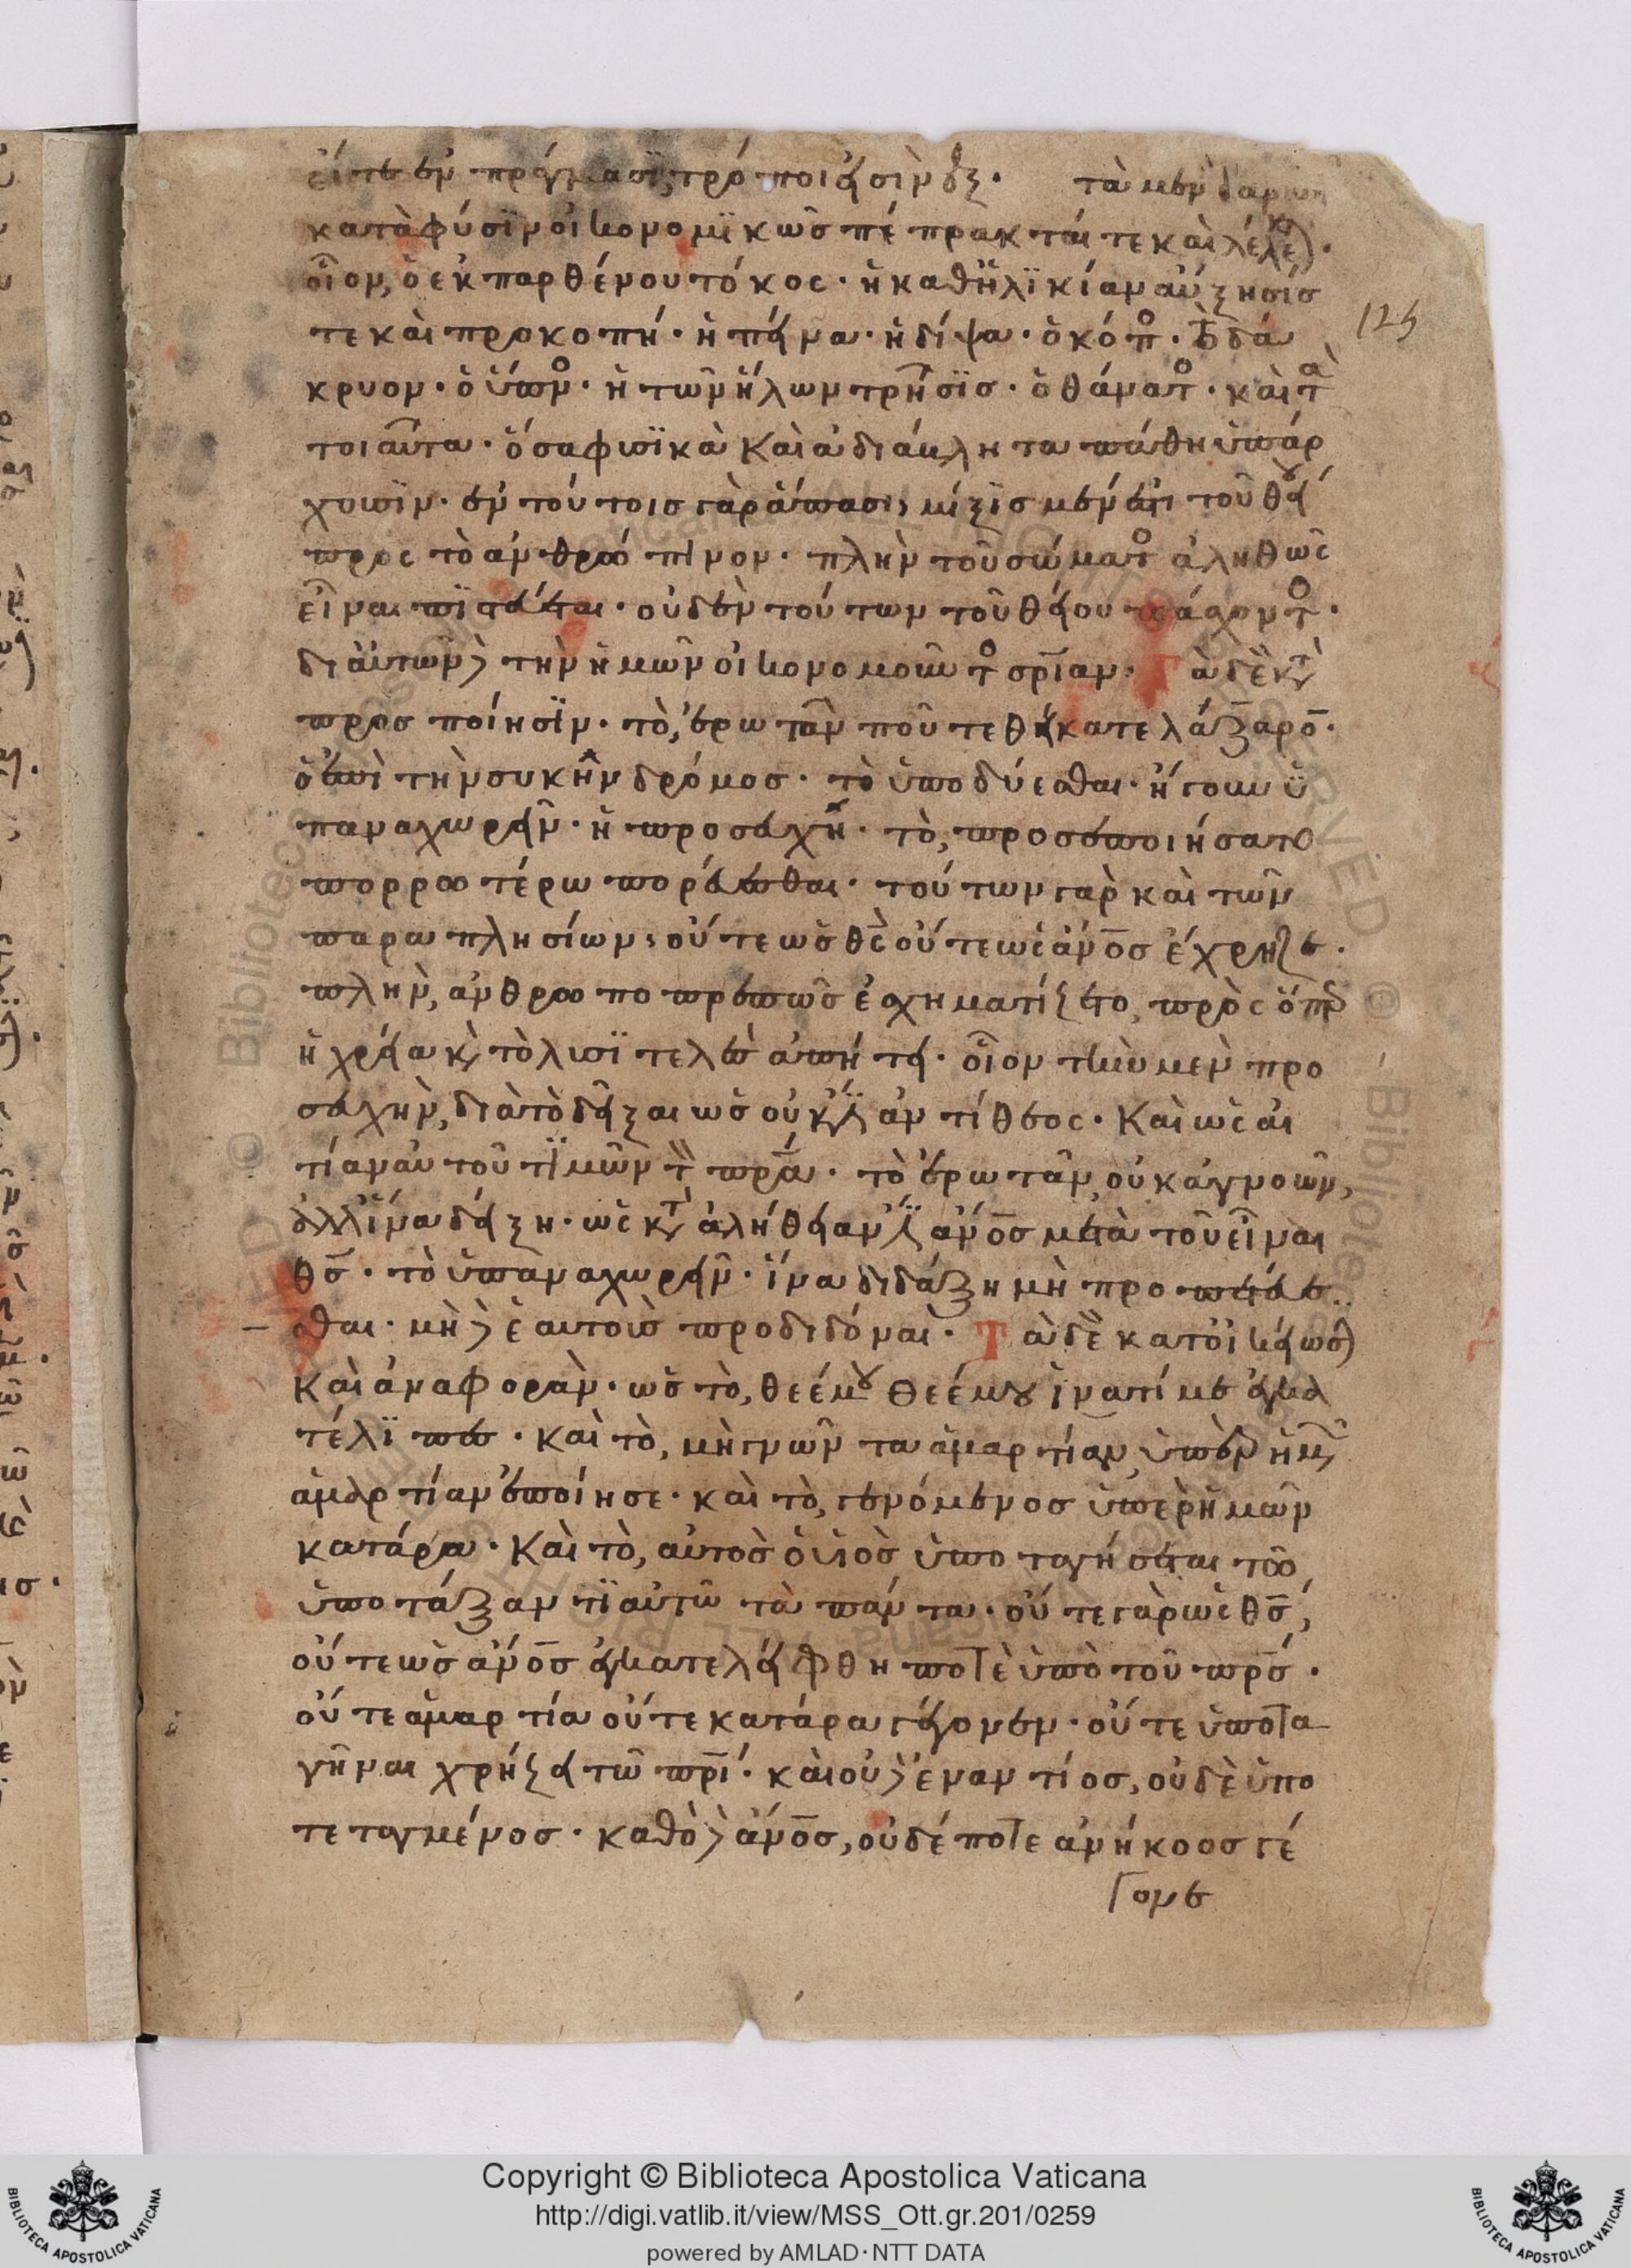 εἴτε ἐν πράγμασϊ, τρόποι εἰσὶν δξ. τὰ μὲν
κατὰ φύσϊν οἰκονομϊκῶς πέπρακταί τε καὶ λέλε).
οἷον, ὁ ἐκ παρθένου τόκος. ἡ καθ' ἡλϊκίαν αὔξησίς
τε καὶ προκοπή. ἡ πεῖνα. ἡ δίψα. ὁ κόπο. τὸ δά
κρυον. ὁ ὕπνο. ἡ τῶν ἥλων τρῆσϊς. ὁ θάνατο. καὶ τὰ
τοιαῦτα. ὅσα φυσϊκὰ καὶ ἀδιάβλητα πάθη ὑπάρ
χουσϊν. ἐν τούτοις γὰρ ἅπασι, μίξϊς μέν ἐστι τοῦ θεί
πρὸς τὸ ἀνθρώπινον. πλὴν τοῦ σώματο ἀληθῶς
εἶναι πϊστεύεται. οὐδὲν τούτων τοῦ θείου πάσχοντο.
δι' αὐτῶν δὲ τὴν ἡμῶν οἰκονομοῦντο σρίαν. Τὰ δὲ κτ
προσποίησϊν. τὸ, ἐρωτᾶν ποῦ τεθείκατε λάζαρο.
ὁ ἐπὶ τὴν συκῆν δρόμος. τὸ ὑποδύεσθαι. ἤγουν ὑ
παναχωρεῖν. ἡ προσευχή. τὸ, προσεποιήσατο
πορρωτέρω πορεύεσθαι. τούτων γὰρ καὶ τῶν
παραπλησίων, οὔτε ὡς θς οὔτε ὡς ἄνος ἔχρηζε.
πλὴν, ἀνθρωποπρεπῶς ἐσχηματίζετο, πρὸς ὅπερ
ἡ χρεία κ τὸ λυσϊτελὲς ἀπῄτει. οἷον τὴν μὲν προ
σευχὴν, διὰ τὸ δεῖξαι ὡς οὐκ ἔστιν ἀντίθεος. καὶ ὡς αἰ
τίαν αὐτοῦ τϊμῶν τ πρα. τὸ ἐρωτᾶν, οὐκ ἀγνοῶν,
ἀλλ' ἵνα δείξη. ὡς κτ ἀλήθειαν ἔστιν ἄνος μετὰ τοῦ εἶναι
θς. τὸ ὑπαναχωρεῖν. ἵνα διδάξη μὴ προπετεύε
σθαι. μὴ δὲ ἑαυτοὺς προδιδόναι. Τὰ δὲ κατ' οἰκείωσ)
καὶ ἀναφορὰν. ὡς τὸ, θεέ μου θεέ μου ἱνατί με ἐγκα
τέλϊπες. καὶ τὸ, μὴ γνῶντα ἁμαρτίαν, ὑπὲρ ἡμ
ἁμαρτίαν ἐποίησε. καὶ τὸ, γενόμενος ὑπὲρ ἡμῶν
κατάρα. καὶ τὸ, αὐτὸς ὁ υἱὸς ὑποταγήσεται τῶ
ὑποτάξαντϊ αὐτῶ τὰ πάντα. οὔτε γὰρ ὡς θς,
οὔτε ὡς ἄνος ἐγκατελείφθη ποτὲ ὑπὸ τοῦ πρς.
οὔτε ἁμαρτία οὔτε κατάρα γέγονεν. οὔτε ὑποτα
γῆναι χρήζει τῶ πρί. καὶ οὐδὲ ἐναντίος, οὐδὲ ὑπο
τεταγμένος. καθὸ δὲ ἄνος, οὐδέποτε ἀνήκοος γέ
γονε
125
Copyright © Biblioteca Apostolica Vaticana
http://digi.vatlib.it/view/MSS_Ott.gr.201/0259
powered by AMLAD·NTT DATA
BIBLIOTECA APOSTOLICA VATICANA
BIBLIOTECA APOSTOLICA VATICANA